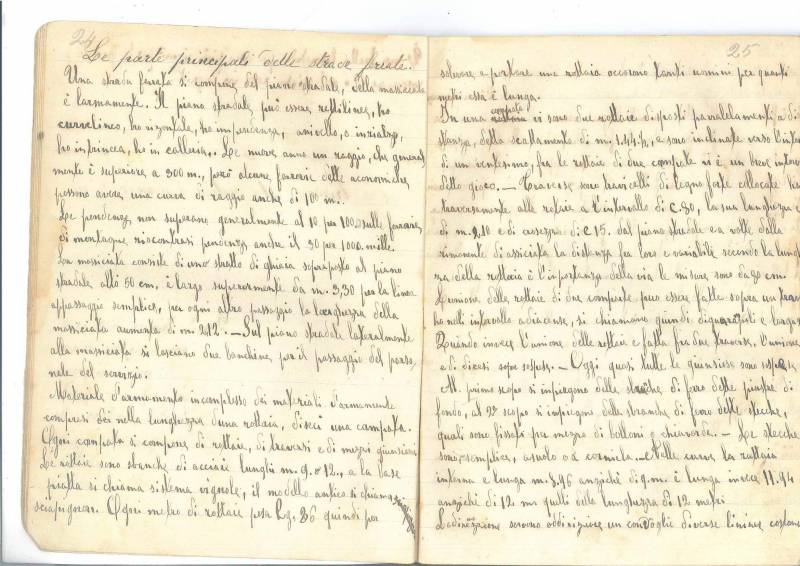 24
Le parte principali delle strade ferate.
Una strada ferrata si compone del piano stradale, della massicciata
è l'armamento. Il piano stradale può essere rettilineo, ho
curvelineo, ho orizontale, ho in pendenza, a nivello, o in rialzo,
ho in trincea, ho in galleria. Le curve anno un raggio, che general
mente è superiore a 300 m., però alcune ferrovie delle economiche
possono avere una curva di raggio anche di 100 m.
Le pendenze non superano generalmente al 10 per 1000 sulle ferrovie
di montagne riscontrasi pendenza anche il 30 per 1000 mille.
La massicciata consiste di uno stratto di ghiaia sopraposto al piano
stradale alto 50 cm. è largo superiormente da m. 3,30 per la linea
a passaggio semplice, per ogni altro passaggio la larghezza della
massicciata aumenta di m. 2.12. — Sul piano stradale lateralmente
alla massicciata si lasciano due banchine per il passaggio del perso
nale del servizio.
Materiale d'armamento in complesso dei materiali d'armamento
compresi dei nella lunghezza d'una rottaia, dicesi una campata.
Ogni campata si compone di rottaie, di traversi e di mezzi giunzione
Le rottaie sono sbranche di acciaio lunghi m. 9. o 12., a la base
piatta si chiama sistema vignole, il modello antico si chiama
Ogni metro di rottaie pesa Kg. 36 quindi per
25
solevare e portare una rottaia occorono tanti uomini per quanti
metri essa è lunga.
In una campata vi sono due rottaie disposti parralelamenti a di
stanza, detta scattamento di m. 1.445, e sono inclinate verso l'inter
di un ventesimo, fra le rottaie di due campate vi è un breve interv
detto gioco. — Traverse sono travicelli di legno forte collocate
traversamente alle rotaie a l'intervallo di c. 90, la sua lunghezza è
di m. 2,10 e di c. 15. dal piano stradale e a volte dalla
la distanza fra loro è variabile secondo la lungh
zza della rottaia è l'importanza della via le misure sono da 90 cm.
L'unione delle rottaie di due campate può essere fatte sopra un trav
ho nelli intervallo adiacense, si chiamano quindi
Quando invece l'unione delle rottaie è fatta fra due traverse, l'union
e di dicesi sopre sospese. — Oggi quasi tutte le giunsioni sono sospese
Al primo scopo si impiegono delle stranghe di ferro dette piastre di
fondo, al 2º scopo si impiegono della stranche di ferro dette stecche,
quali sono fissati per mezzo di bolloni o chiavarde. — Le stecche
sono semplice, a suolo o a cornicla. — Nelle curve la rottaia
interna è lunga m. 8,96 anziché di 9. m. è lunga invece 11.94
anziché di 12 m. quelli della lunghezza di 12 metri